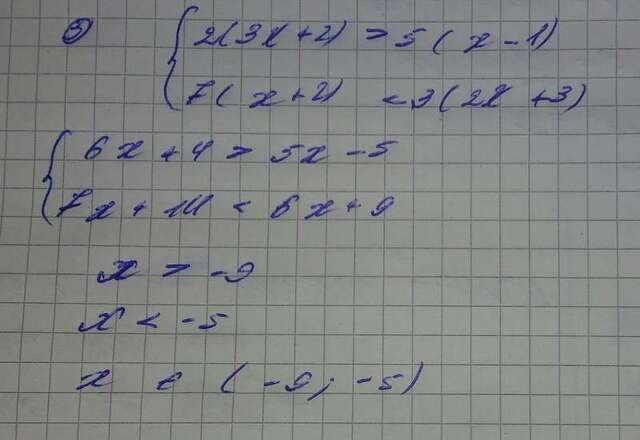 ③ { 2(3x+2) > 5(x-1)
7(x+2) < 3(2x+3)
{ 6x+4 > 5x-5
7x+14 < 6x+9
x > -9
x < -5
x ∈ (-9; -5)